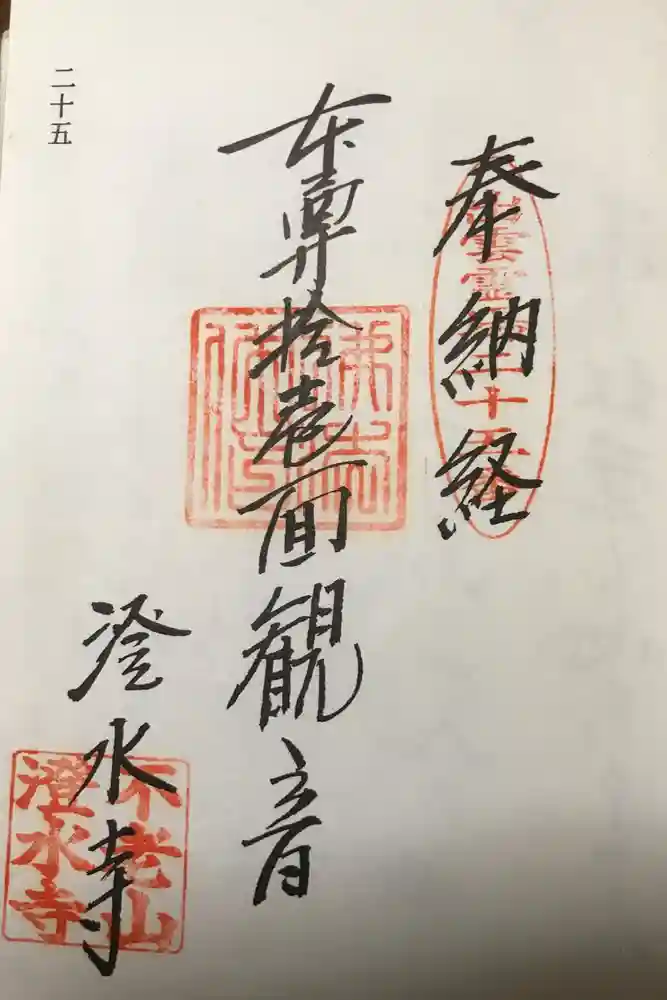 奉納経
出雲霊場二十五番
本尊拾壱面観音
澄水寺
不老山
澄水寺
二十五